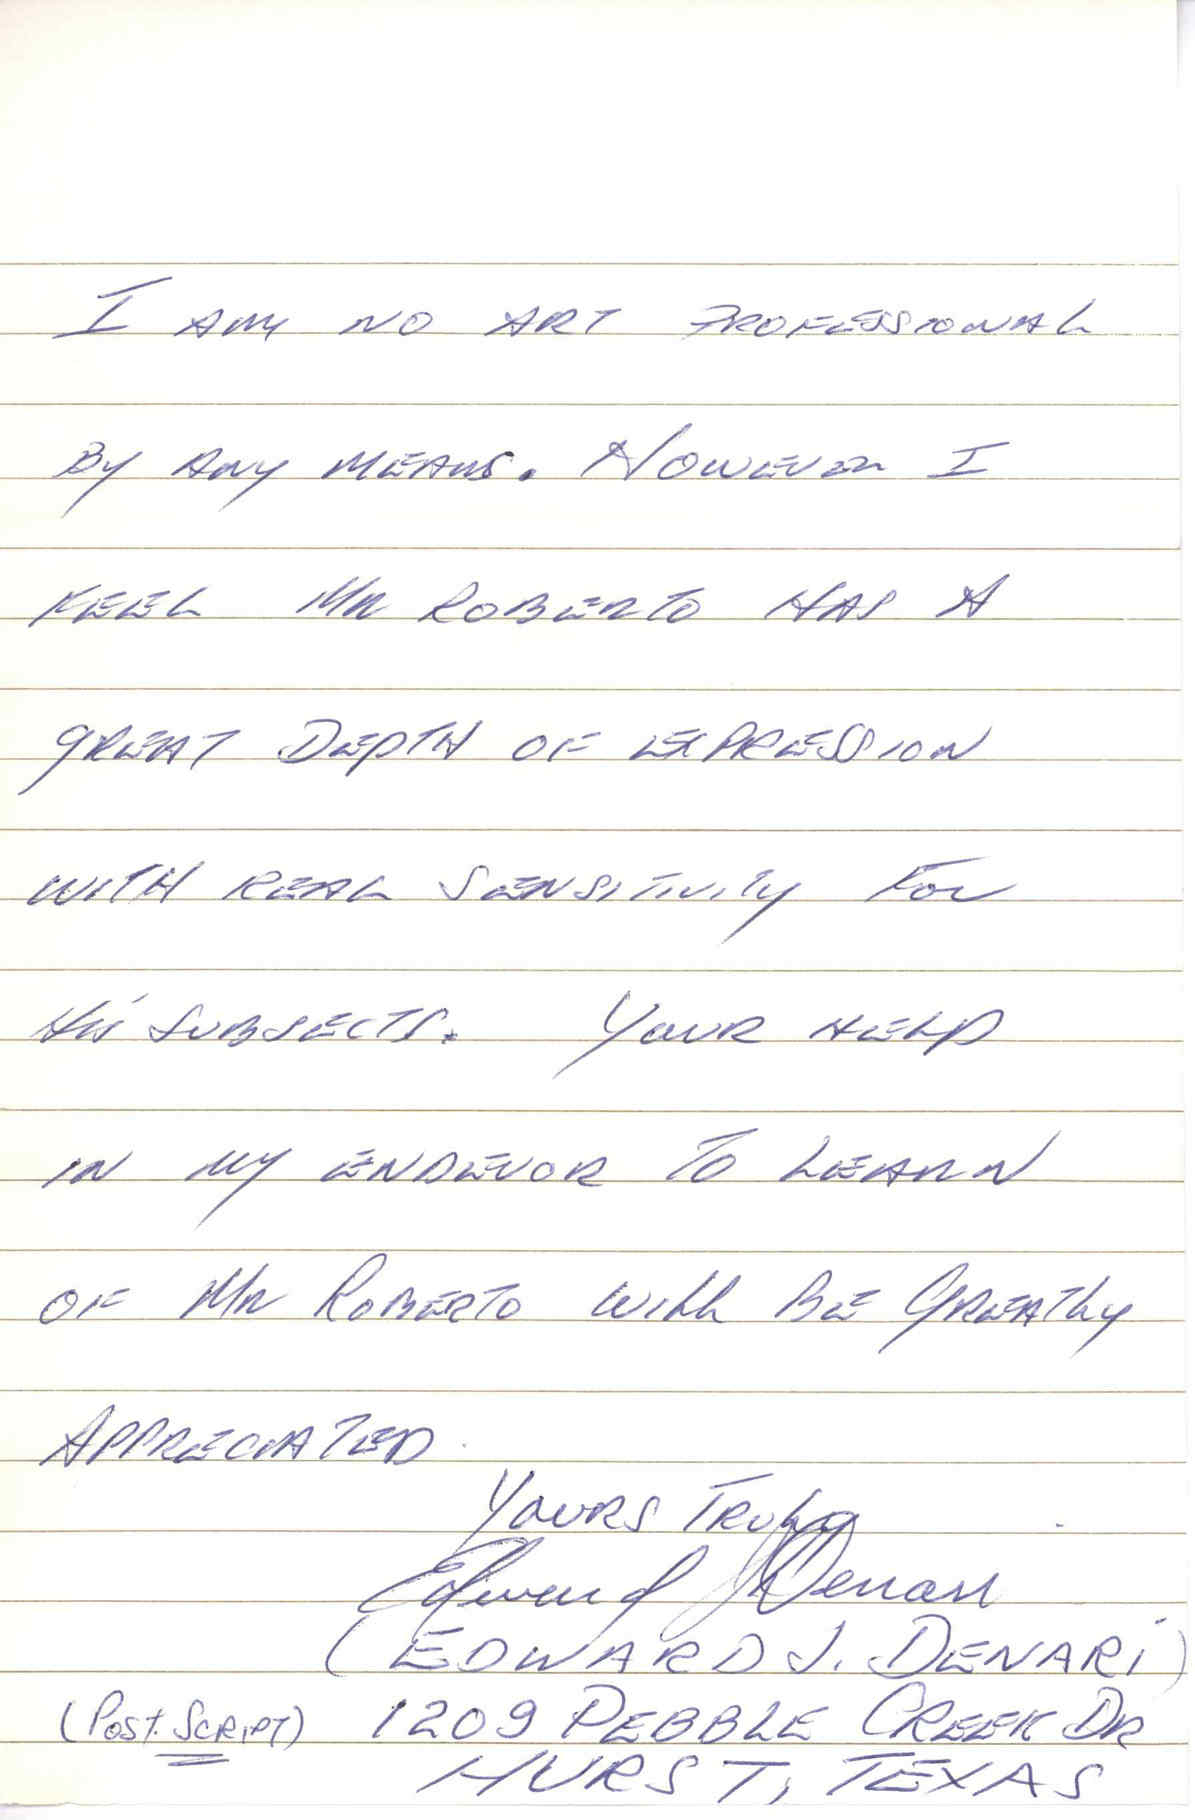 I AM NO ART PROFESSIONAL
BY ANY MEANS. HOWEVER I
FEEL MR ROBERTO HAS A
GREAT DEPTH OF EXPRESSION
WITH REAL SENSITIVITY FOR
HIS SUBJECTS. YOUR HELP
IN MY ENDEVOR TO LEARN
OF MR ROBERTO WILL BE GREATLY
APPRECIATED.
YOURS TRULY
Edward J Denari
(EDWARD J. DENARI)
(POST. SCRIPT) 1209 PEBBLE CREEK DR
HURST, TEXAS